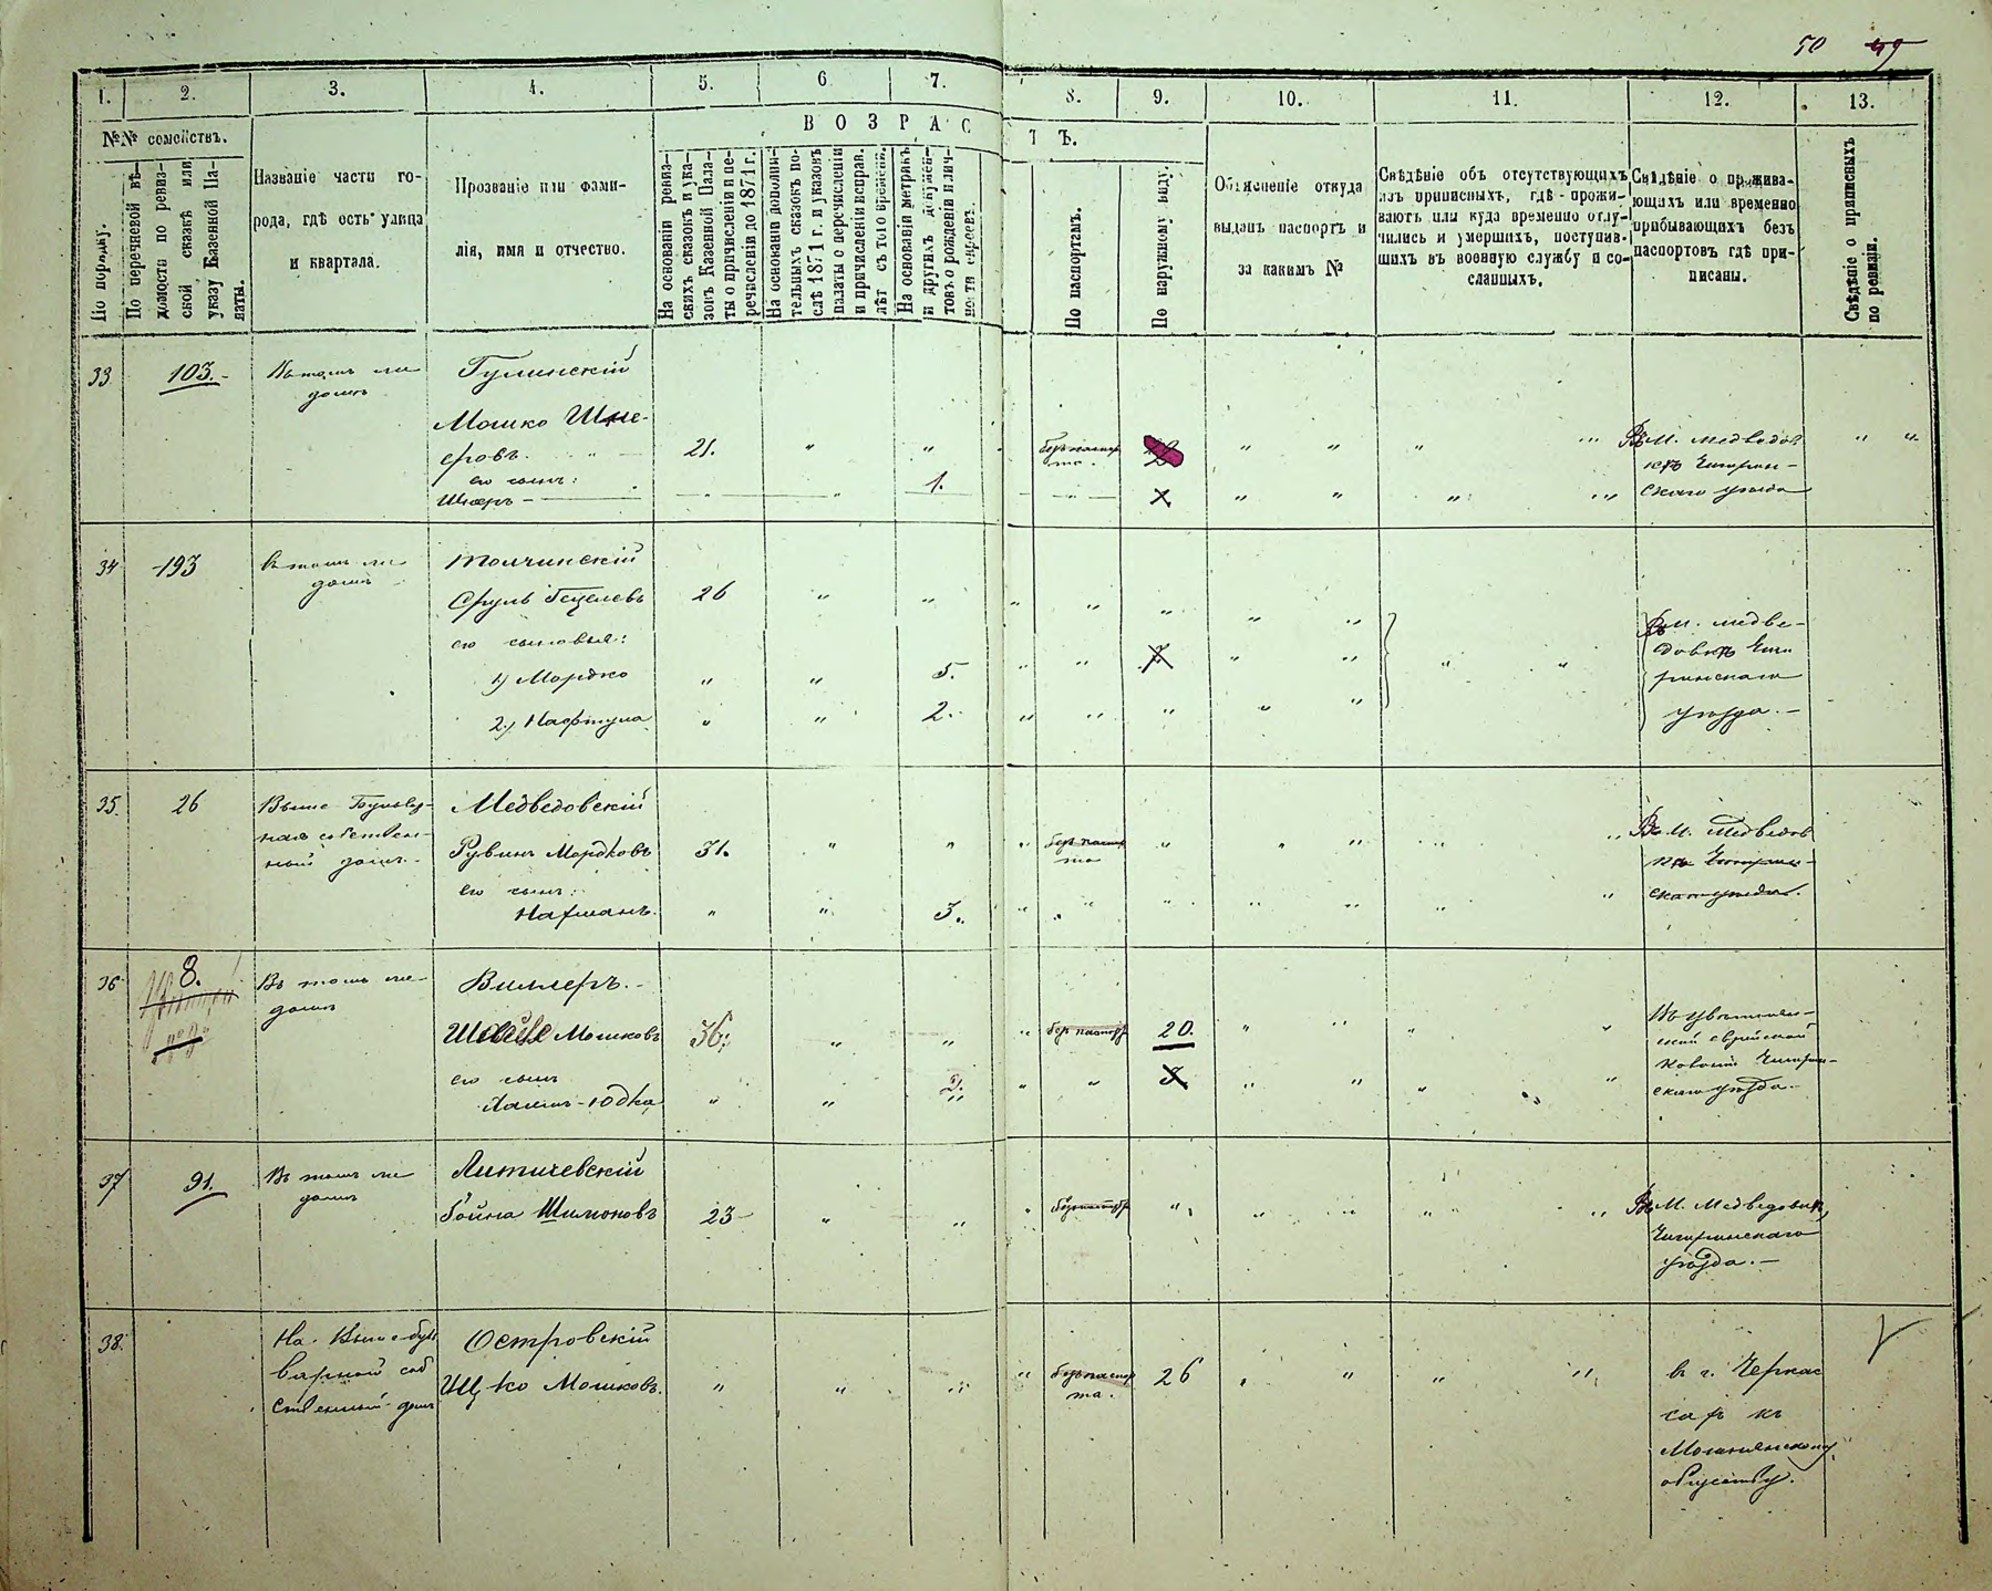 50 49
1. 2. 3. 4. 5. 6. 7. 8. 9. 10. 11. 12. 13.
№№ семействъ.
По порядку.
По перечневой вѣ-
домости по ревиз-
ской сказкѣ или
указу Казенной Па-
латы.
Названіе части го-
рода, гдѣ есть улица
и квартала.
Прозваніе или фами-
лія, имя и отчество.
ВОЗРАС
ТЪ.
На основаніи ревиз-
скихъ сказокъ и ука-
зовъ Казенной Пала-
ты о причисленіи и пе-
речисленіи до 1871 г.
На основаніи дополни-
тельныхъ сказокъ по-
слѣ 1871 г. и указовъ
палаты о перечисленіи
и причисленіи исправ.
лѣт съ того времени.
На основаніи метрикъ
и другихъ докумен-
товъ о рожденіи и лич-
По паспортамъ.
По наружному виду.
Объясненіе откуда
выданъ паспортъ и
за какимъ №
Свѣдѣніе объ отсутствующихъ
изъ приписныхъ, гдѣ прожи-
ваютъ или куда временно отлу-
чились и умершихъ, поступив-
шихъ въ военную службу и со-
сланныхъ.
Свѣдѣніе о прожива-
ющихъ или временно
прибывающихъ безъ
паспортовъ гдѣ при-
писаны.
Свѣдѣніе о приписныхъ
по ревизіи.
33 103.
Въ томъ же
домѣ
Гулинскій
Мошко Шме-
еровъ 21.
его сынъ: 1.
безъ паспор
та.
Въ М. Медведов
кѣ Чигрин-
скаго уѣзда
34 193
въ томъ же
домѣ
Толчинскій
Сруль 26
его сыновья:
1) Мордко 5.
2) Нафтула 2.
Въ М. Медве-
довкѣ Чиги
ринскаго
уѣзда.
35. 26
Выше Бульвар-
ный домъ
Медведовскій
Рувинъ Мордковъ 31.
его сынъ:
Нахманъ. 3.
безъ паспор
та
Въ М. Медведов
кѣ Чигрин-
скаго уѣзда.
36 8.
Въ томъ же
домѣ
Виллеръ.
Мошковъ 36.
его сынъ
Хаимъ-Юдка 2.
безъ паспорт 20.
еврейской
Чигрин-
скаго уѣзда.
37 91.
Въ томъ же
домѣ
Литичевскій
Шимоновъ 23
Въ М. Медведовкѣ,
Чигиринскаго
уѣзда.
38.
На Выше-буль
варной соб
ственный домъ
Островскій
Ицко Мошковъ.
безъ паспор
та. 26
въ г. Черкас
сахъ къ
Мошнянскому
обществу.